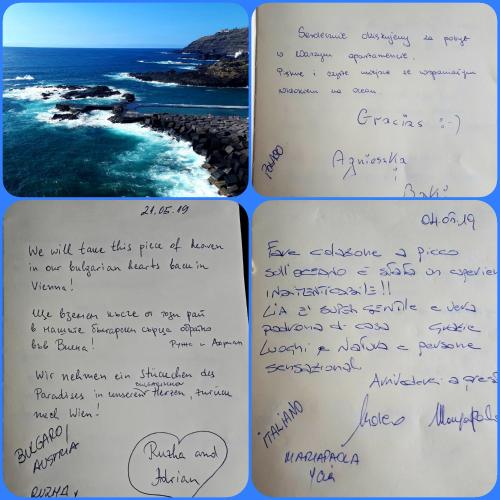 Serdecznie dziękujemy za pobyt
w Waszym apartamencie.
Piękne i czyste miejsce ze wspaniałym
widokiem na ocean.
Gracias :-)
Agnieszka
i
POLACO
21.05.19
We will take this piece of heaven
in our bulgarian hearts back in
Vienna!
Ще вземем късче от този рай
в нашите български сърца обратно
във Виена!
Ружа и Адриан
Wir nehmen ein Stückchen des
Paradises in unseren Herzen, zurück
nach Wien!
Ruzha and
Adrian
BULGARO/
AUSTRIA
RUZHA Y
04.05.19
Fare colazione a picco
sull'oceano è stata un'esperien
INDIMENTICABILE!!
LIA è super gentile e vera
padrona di casa Grazie
Luoghi e Natura e persone
sensazionali
Arrivederci a presto
ITALIANO
MARIAPAOLA